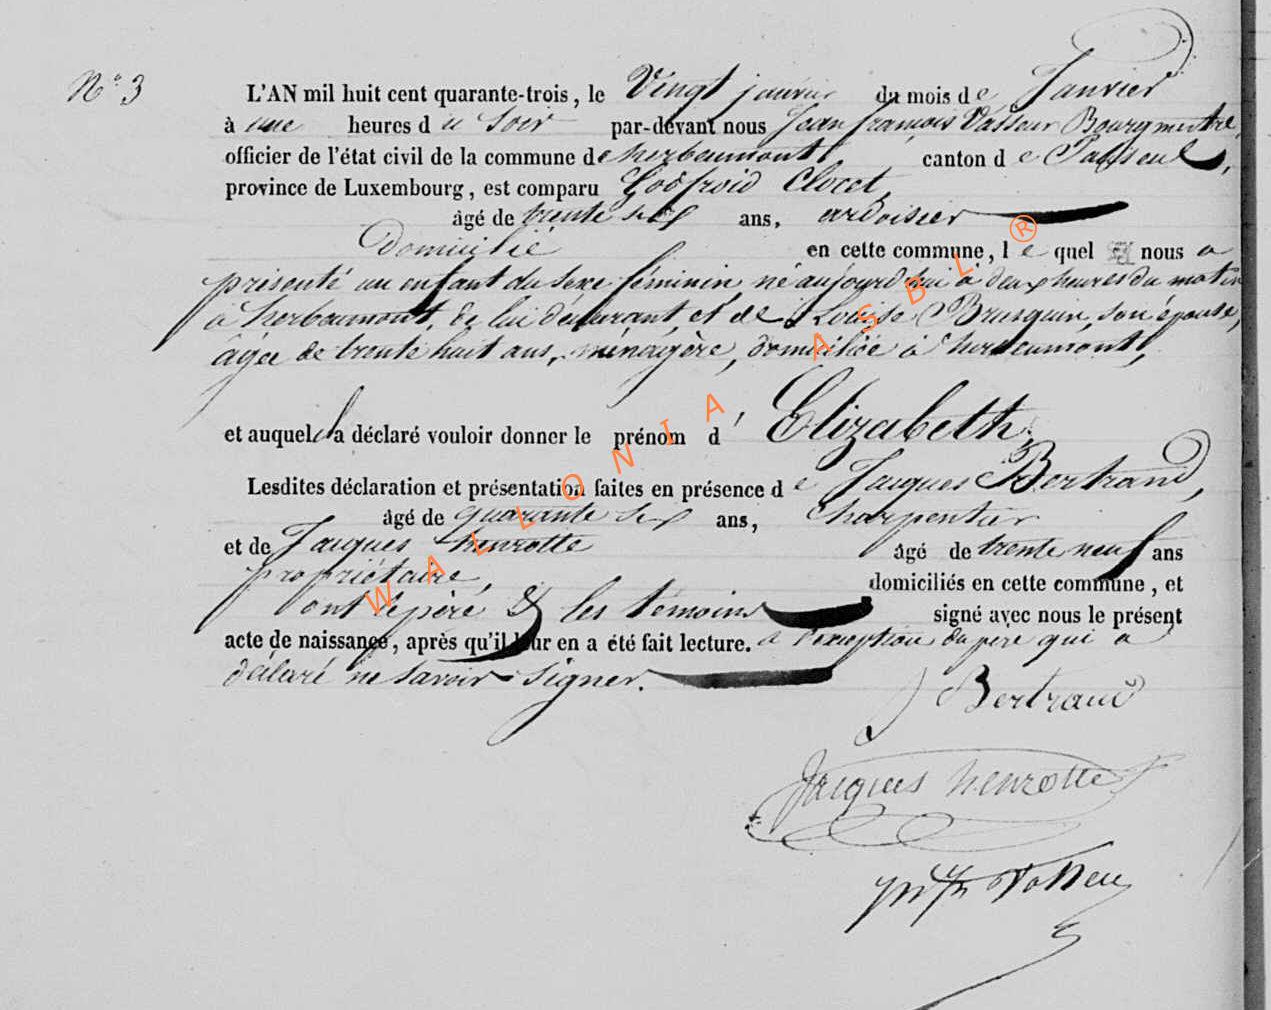 N° 3
L'AN mil huit cent quarante-trois, le Vingt janvier du mois de Janvier
à une heures du Soir par-devant nous Jean françois Vasseur Bourgmestre,
officier de l'état civil de la commune de herbeumont, canton de Paliseul,
province de Luxembourg, est comparu Godfroid Cloret,
âgé de trente six ans, ardoisier
Domicilié en cette commune, lequel nous a
présenté un enfant du sexe féminin né aujourd'hui à deux heures du matin
à herbeumont, de lui déclarant, et de Louise Brusquin, son épouse,
âgée de trente huit ans, ménagère, domiciliée à herbeumont,
et auquel la déclaré vouloir donner le prénom d' Elizabeth.
Lesdites déclaration et présentation faites en présence de Jacques Bertrand,
âgé de quarante six ans, Charpentier
et de Jacques henrotte âgé de trente neuf ans
propriétaire, domiciliés en cette commune, et
ont le père et les témoins signé avec nous le présent
acte de naissance, après qu'il leur en a été fait lecture. a l'exception du père qui a
déclaré ne savoir signer.
J Bertrand
Jacques henrotte
WALLONIA ASBL ®